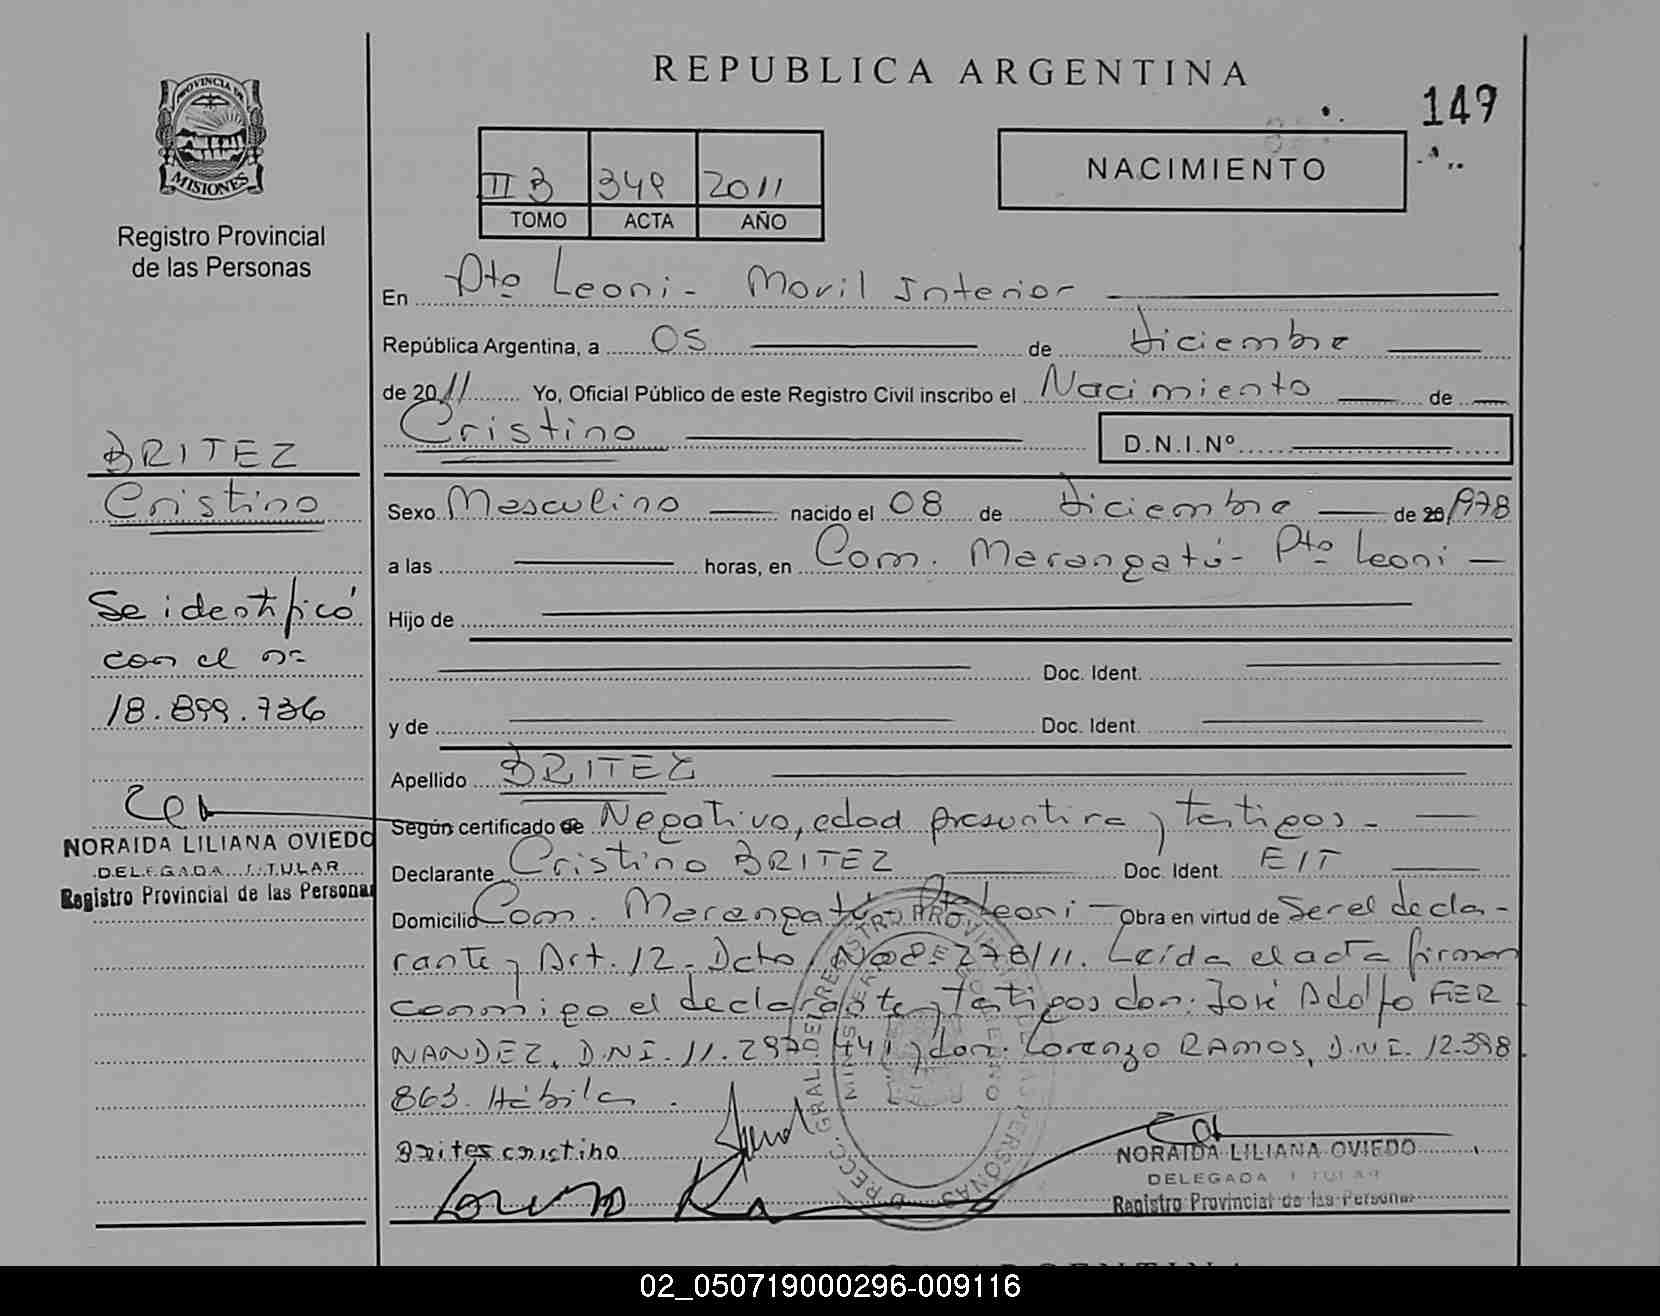 REPUBLICA ARGENTINA
149
PROVINCIA DE
MISIONES
Registro Provincial
de las Personas
II B 349 2011
TOMO ACTA AÑO
NACIMIENTO
En Pto Leoni - Movil Interior
República Argentina, a 05 de diciembre
de 2011 Yo, Oficial Público de este Registro Civil inscribo el Nacimiento de
Cristino D.N.I.Nº
BRITEZ
Cristino
Se identificó
con el nº
18.899.736
NORAIDA LILIANA OVIEDO
DELEGADA TITULAR
Registro Provincial de las Personas
Sexo Masculino nacido el 08 de diciembre de 20 1978
a las horas, en Com. Marangatú - Pto Leoni
Hijo de
Doc. Ident.
y de Doc. Ident.
Apellido BRITEZ
Según certificado de Negativo, edad presuntiva y testigos -
Declarante Cristino BRITEZ Doc. Ident. EIT
Domicilio Com. Marangatú - Pto Leoni - Obra en virtud de Ser el decla-
rante y Art. 12 - Dcto 278/11. Leída el acta firman
conmigo el declarante y testigos don: José Adolfo FER
NANDEZ, D.N.I. 11.297.441 y don: Lorenzo RAMOS, D.N.I. 12.398
863. Hábiles.
Brites cristino
Lorenzo
NORAIDA LILIANA OVIEDO
DELEGADA TITULAR
Registro Provincial de las Personas
02_050719000296-009116